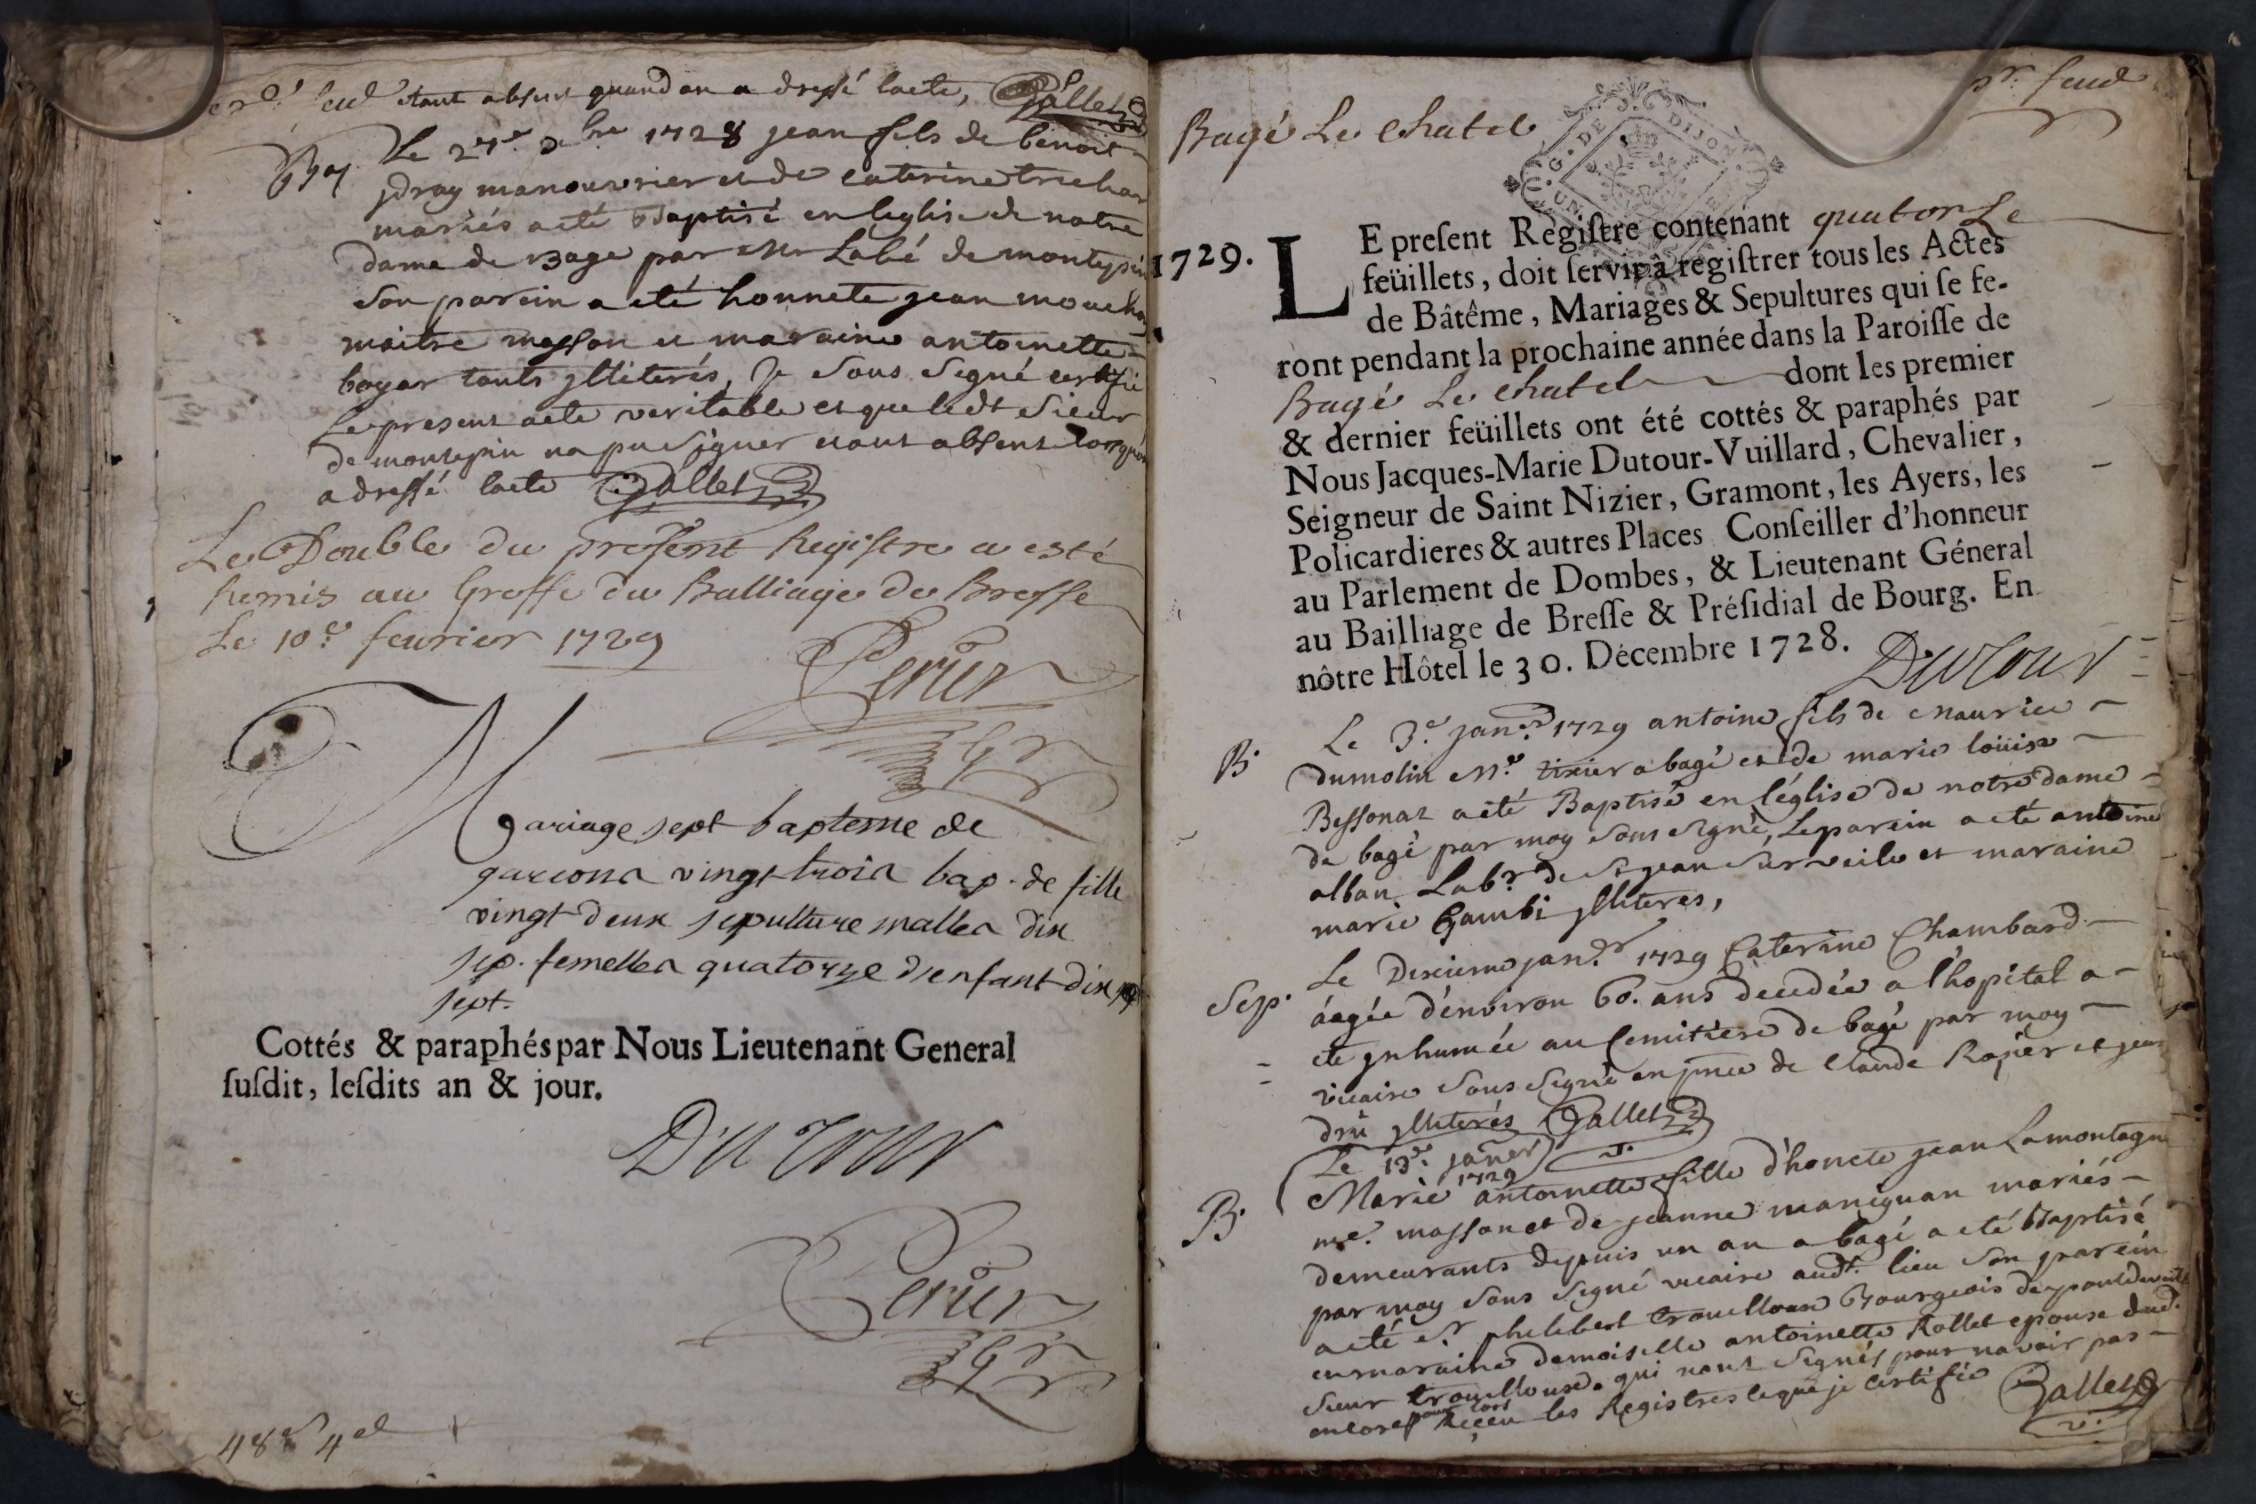 feul étant absent quand on a dressé lacte, Gallet
Bap
Le 27e xbre 1728 jean fils de benoit
ydray manouvrier et de caterine trichar
mariés a eté Baptisé en leglise de notre
dame de Bage par Mr Labé de montepin
son parein a eté honnete jean mouchon
maitre masson et maraine antoinette
boyar touts illiterés, Je sous signé certifie
le present acte veritable et que ledt sieur
de montepin na pu signer etant absent lorsquon
a dressé lacte Gallet
Le Double du present Registre a esté
Remis au Greffe du Balliage de Bresse
Le 10e fevrier 1729
Perier
Gr
Mariage sept bapteme de
garcons vingt trois bap. de fille
vingt deux sepulture malles dix
sep. femelles quatorze d'enfant dix
sept.
Cottés & paraphés par Nous Lieutenant General
ſuſdit, leſdits an & jour.
DUTOUR
Perier
Gr
48 4
pr. feuil
Bagé Le Chatel
G. DE DIJON
UN
1729.
LE preſent Regiſtre contenant quatorze
feüillets, doit ſervir à regiſtrer tous les Actes
de Bâtême, Mariages & Sepultures qui ſe fe-
ront pendant la prochaine année dans la Paroiſſe de
Bagé Le Chatel dont les premier
& dernier feüillets ont été cottés & paraphés par
Nous Jacques-Marie Dutour-Vuillard, Chevalier,
Seigneur de Saint Nizier, Gramont, les Ayers, les
Policardieres & autres Places Conſeiller d'honneur
au Parlement de Dombes, & Lieutenant Géneral
au Bailliage de Breſſe & Préſidial de Bourg. En
nôtre Hôtel le 30. Décembre 1728.
DUTOUR
B.
Le 3e janer 1729 antoine fils de Maurice
dumolin Me tixier a bagé et de marie loüise
Bessonat a eté Baptisé en l'église de notre dame
de bagé par moy sous signé, Le parein a eté antoine
alban Labr de St jean sur veile et maraine
marie Gambi illiteres,
Sep.
Le Dixieme janer 1729 Caterine Chambard
âagée d'environ 60. ans decedée a l'hopital a
eté inhumée au Cemitiere de bagé par moy
vicaire sous signé en pnce de Claude Rapier et jean
dru illiterés Gallet
v.
B.
Le 13e janer
1729
Marie antoinette fille d'honete jean Lamontagne
me. masson et de jeanne maniguan mariés
demeurants depuis un an a bagé a eté Baptisé
par moy sous signé vicaire audt. lieu son parein
a eté sr philebert trouilloux Bourgeois de pondevaux
et maraine demoiselle antoinette Rollet epouse dud.
sieur trouilloux. qui nont signés pour navoir pas
pour lors
encores Reçeu les Registres ce que je certifie Gallet
v.